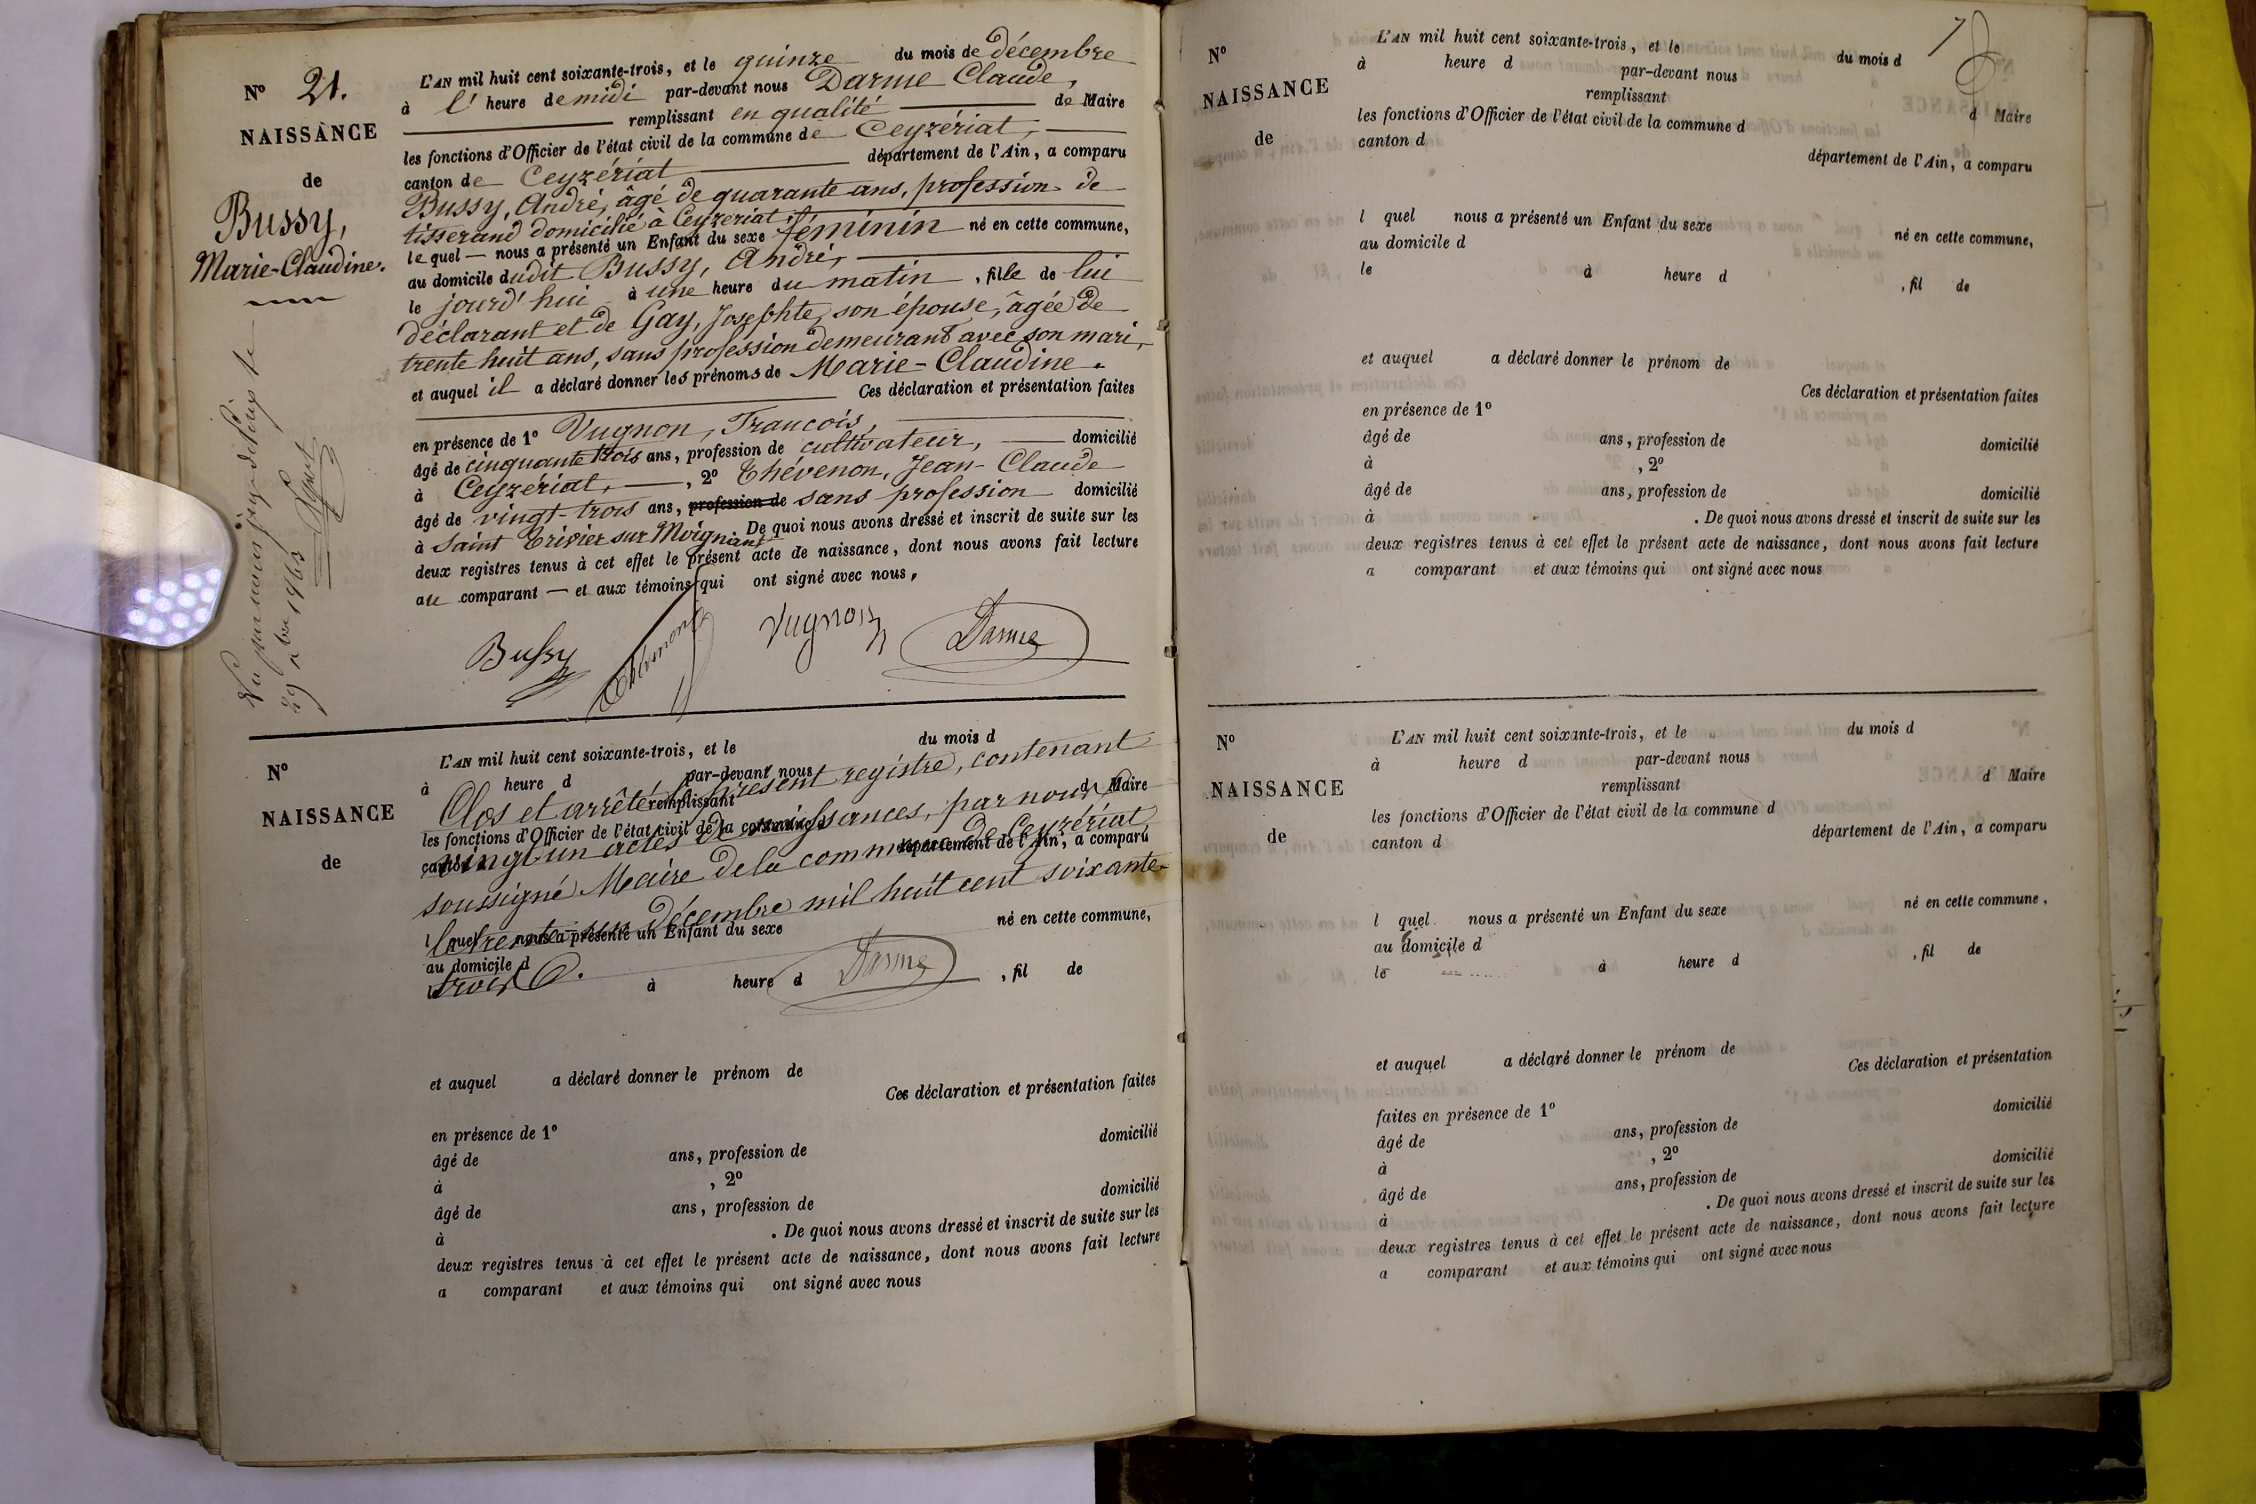 N° 21.
NAISSANCE
de
Bussy,
Marie-Claudine.
L'AN mil huit cent soixante-trois, et le quinze du mois de décembre
à l' heure de midi par-devant nous Darme Claude,
remplissant en qualité de Maire
les fonctions d'Officier de l'état civil de la commune de Ceyzériat,
canton de Ceyzériat département de l'Ain, a comparu
Bussy, André, âgé de quarante ans, profession de
tisserand domicilié à Ceyzériat,
le quel — nous a présenté un Enfant du sexe féminin né en cette commune,
au domicile dudit Bussy, André,
le jourd'hui à une heure du matin, fille de lui
déclarant et de Gay, Josephte, son épouse, âgée de
trente huit ans, sans profession demeurant avec son mari,
et auquel il a déclaré donner les prénoms de Marie-Claudine.
Ces déclaration et présentation faites
en présence de 1° Vugnon, Francois,
âgé de cinquante trois ans, profession de cultivateur, domicilié
à Ceyzériat, , 2° Thévenon, Jean-Claude
âgé de vingt-trois ans, profession de sans profession domicilié
à Saint Trivier sur Moignans. De quoi nous avons dressé et inscrit de suite sur les
deux registres tenus à cet effet le présent acte de naissance, dont nous avons fait lecture
au comparant — et aux témoins qui ont signé avec nous,
Bussy Vugnon Darme
N°
NAISSANCE
de
L'AN mil huit cent soixante-trois, et le du mois d
à heure d par-devant nous
Clos et arrêté le présent registre, contenant
remplissant d Maire
les fonctions d'Officier de l'état civil de la commune d
vingt un actes de naissances, par nous
canton d département de l'Ain, a comparu
soussigné Maire de la commune de Ceyzériat,
le trente-un Décembre mil huit cent soixante-
l quel nous a présenté un Enfant du sexe né en cette commune,
au domicile d
trois.
le à heure d , fil de
Darme
et auquel a déclaré donner le prénom de
Ces déclaration et présentation faites
en présence de 1°
âgé de ans, profession de domicilié
à , 2°
âgé de ans, profession de domicilié
à . De quoi nous avons dressé et inscrit de suite sur les
deux registres tenus à cet effet le présent acte de naissance, dont nous avons fait lecture
a comparant et aux témoins qui ont signé avec nous
N°
NAISSANCE
de
L'AN mil huit cent soixante-trois, et le du mois d
à heure d par-devant nous
remplissant d Maire
les fonctions d'Officier de l'état civil de la commune d
canton d département de l'Ain, a comparu
l quel nous a présenté un Enfant du sexe né en cette commune,
au domicile d
le à heure d , fil de
et auquel a déclaré donner le prénom de
Ces déclaration et présentation faites
en présence de 1°
âgé de ans, profession de domicilié
à , 2°
âgé de ans, profession de domicilié
à . De quoi nous avons dressé et inscrit de suite sur les
deux registres tenus à cet effet le présent acte de naissance, dont nous avons fait lecture
a comparant et aux témoins qui ont signé avec nous
N°
NAISSANCE
de
L'AN mil huit cent soixante-trois, et le du mois d
à heure d par-devant nous
remplissant d Maire
les fonctions d'Officier de l'état civil de la commune d
canton d département de l'Ain, a comparu
l quel nous a présenté un Enfant du sexe né en cette commune,
au domicile d
le à heure d , fil de
et auquel a déclaré donner le prénom de
Ces déclaration et présentation
faites en présence de 1° domicilié
âgé de ans, profession de
à , 2°
âgé de ans, profession de domicilié
à . De quoi nous avons dressé et inscrit de suite sur les
deux registres tenus à cet effet le présent acte de naissance, dont nous avons fait lecture
a comparant et aux témoins qui ont signé avec nous